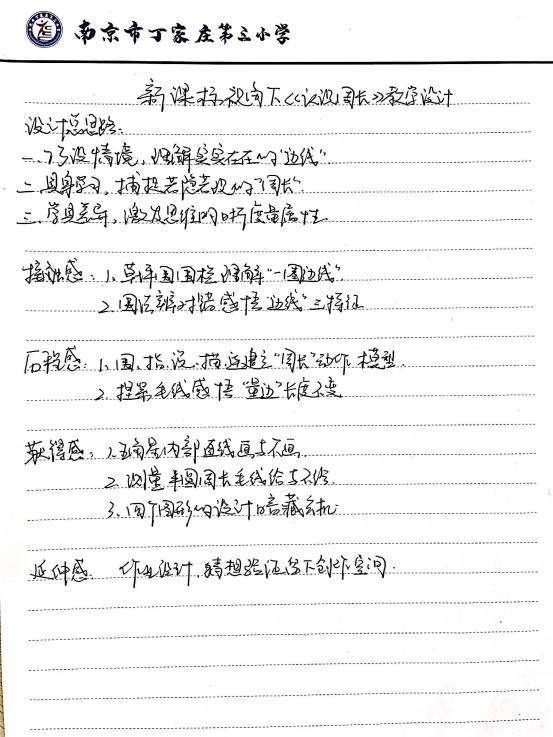 南京市丁家庄第三小学
新课标视角下《认识周长》教学设计
设计总思路:
一、巧设情境,理解实实在在的“边线”.
二、具身学习,捕捉若隐若现的“周长”.
三、学具差异,激发思维的 度量属性.
接触感:1.草坪围围栏理解“一周边线”.
2.图片辨对错感悟“边线”三特征
历程感:1.围、指、说、描 建立“周长”动作模型.
2.捏 毛线感悟“量边”长度不变
获得感:1.五角星内部直线画与不画.
2.测量半圆周长毛线给与不给.
3.四个图形的设计暗藏玄机
延伸感:作业设计,猜想验证留下创作空间.